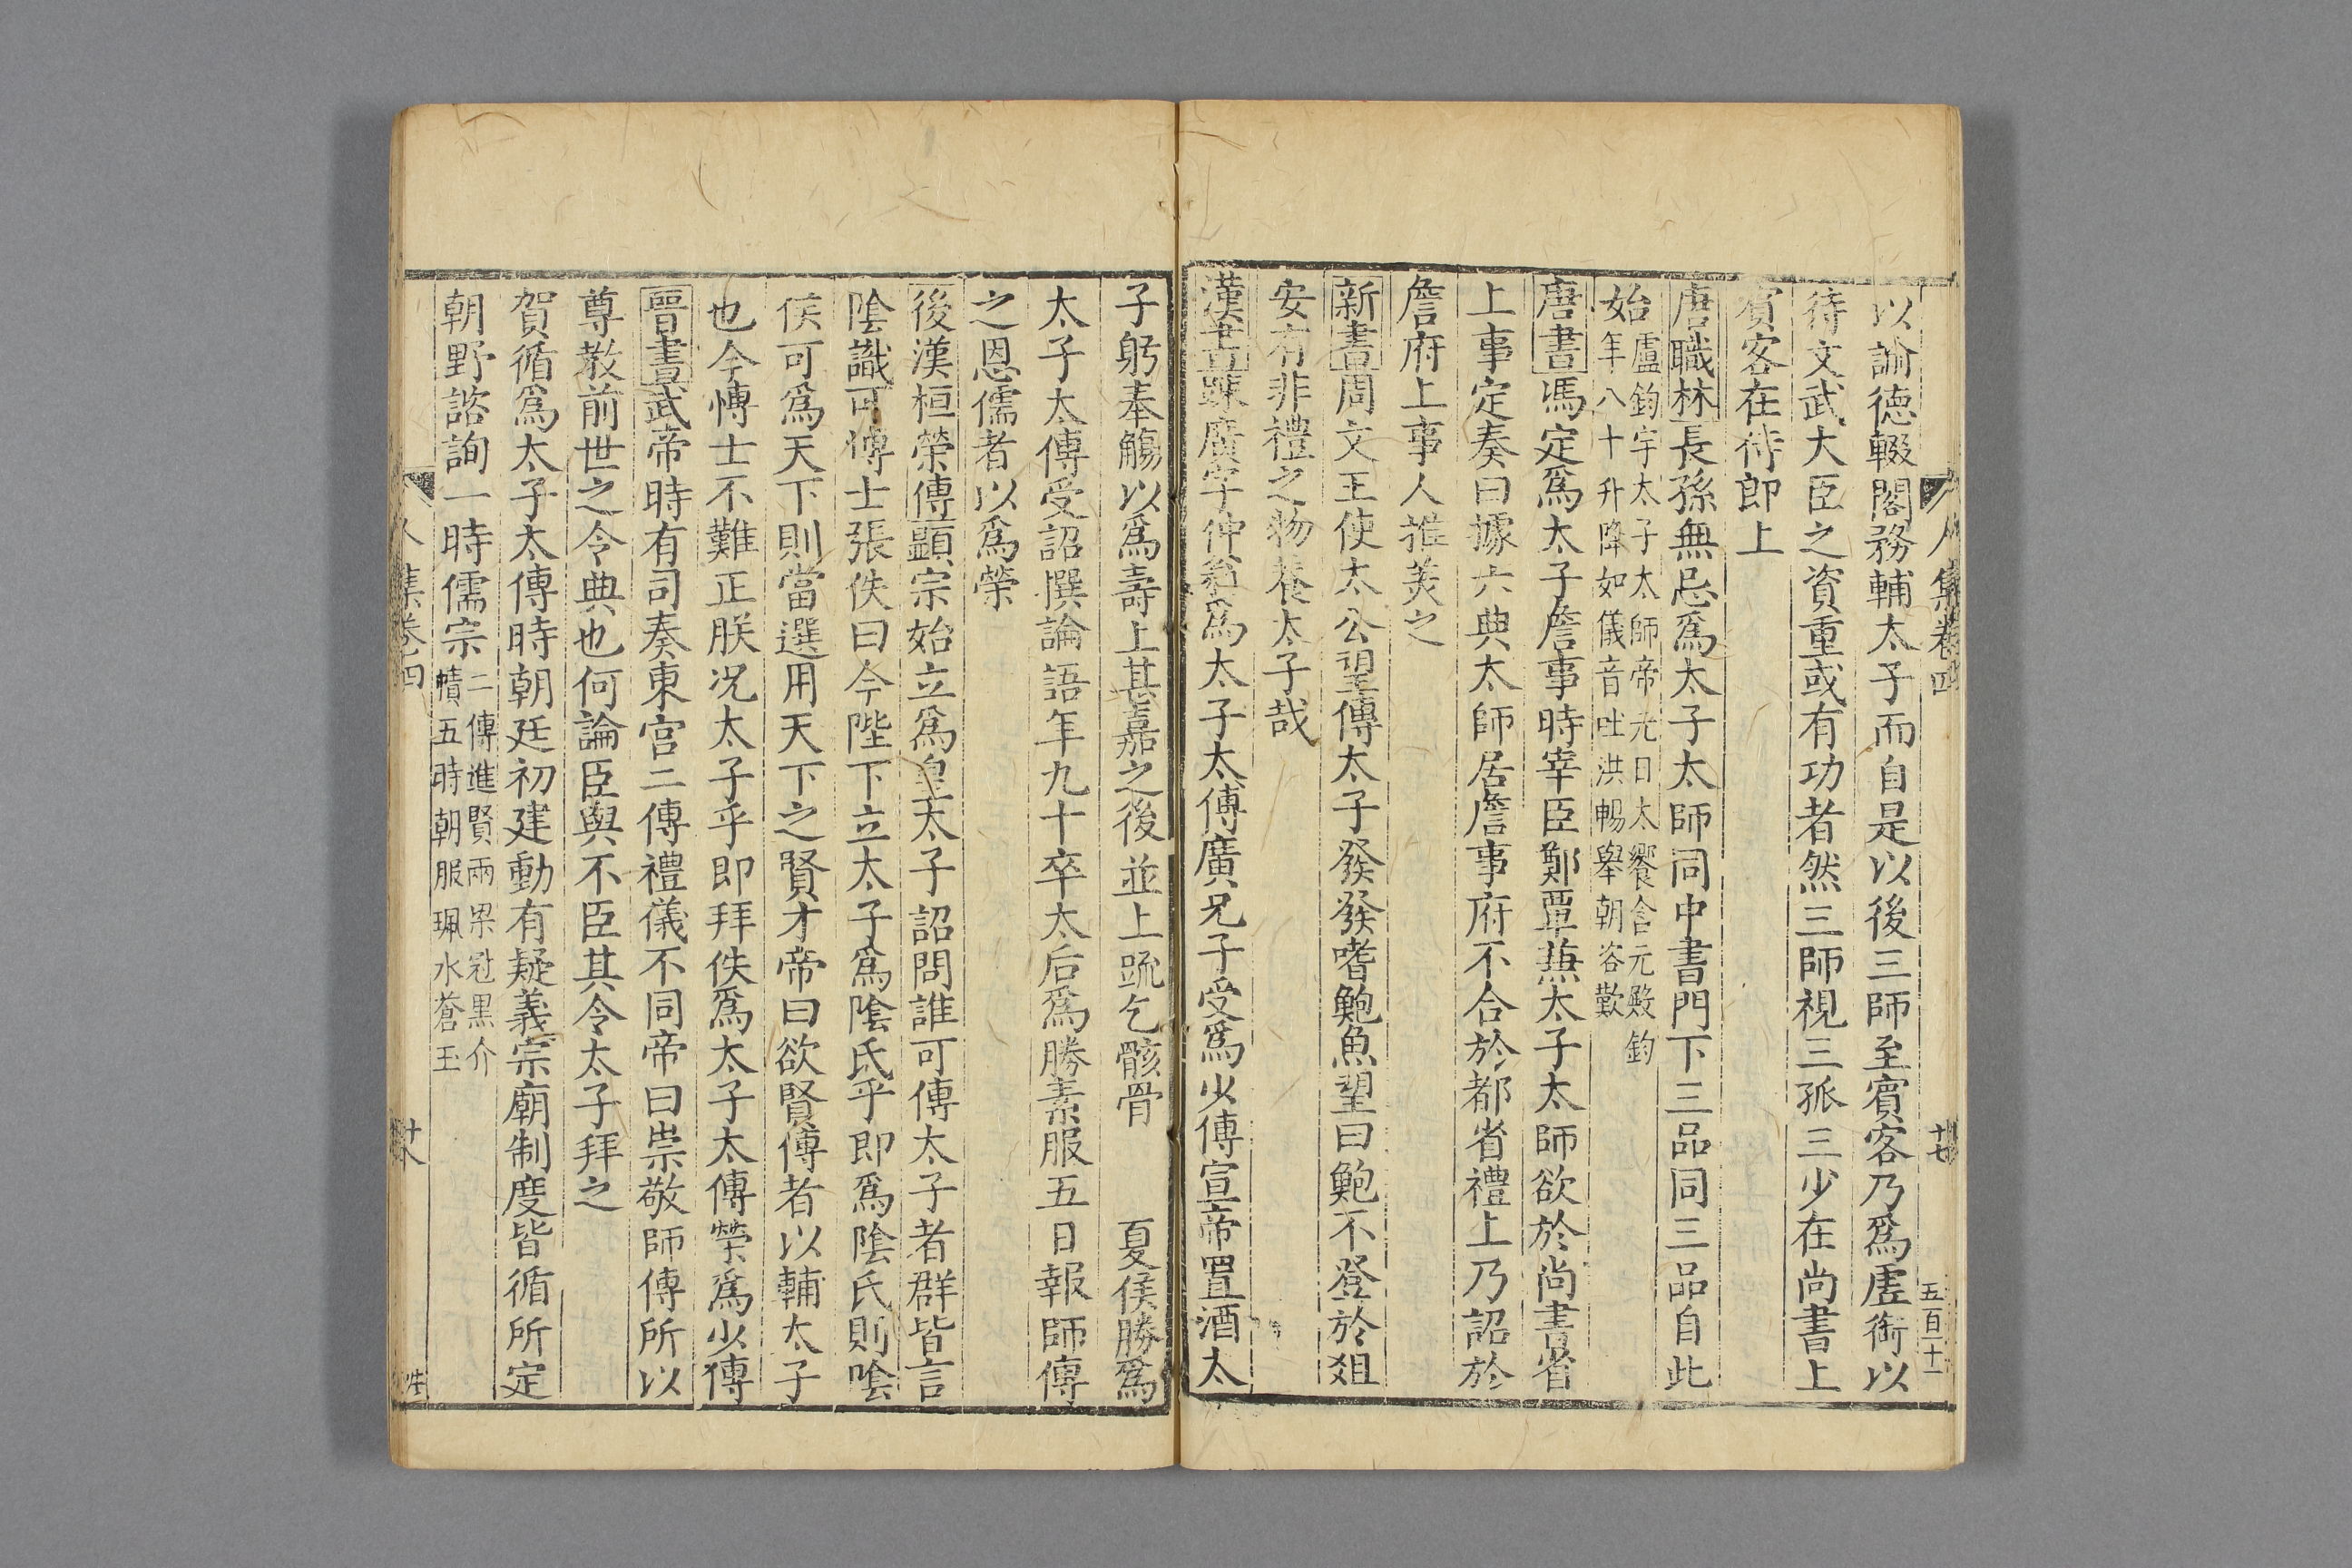 以諭德輟閣務輔太子而自是以後三師至賓客乃爲虛銜以
待文武大臣之資重或有功者然三師視三孤三少在尚書上
賓客在侍郎上
唐職林長孫無忌爲太子太師同中書門下三品同三品自此
始盧鈞字太子太師帝元日太饗含元殿鈞
年八十升降如儀音吐洪暢舉朝咨歎
唐書馮定爲太子詹事時宰臣鄭覃兼太子太師欲於尚書省
上事定奏曰據六典太師居詹事府不合於都省禮上乃詔於
詹府上事人推美之
新書周文王使太公望傳太子發發嗜鮑魚望曰鮑不登於俎
安有非禮之物養太子哉
漢書疎廣字仲翁爲太子太傅廣兄子受爲少傅宣帝置酒太
子躬奉觴以爲壽上甚嘉之後並上疏乞骸骨 夏侯勝爲
太子太傅受詔撰論語年九十卒太后爲勝素服五日報師傅
之恩儒者以爲榮
後漢桓榮傳顯宗始立爲皇太子詔問誰可傅太子者群皆言
陰識可博士張佚曰今陛下立太子爲陰氏乎即爲陰氏則陰
侯可爲天下則當選用天下之賢才帝曰欲賢傅者以輔太子
也今博士不難正朕况太子乎即拜佚爲太子太傅榮爲少傅
晉書武帝時有司奏東宮二傅禮儀不同帝曰崇敬師傅所以
尊教前世之令典也何論臣與不臣其令太子拜之
賀循爲太子太傅時朝廷初建動有疑義宗廟制度皆循所定
朝野諮詢一時儒宗二傅進賢兩梁冠黑介
幘五時朝服珮水蒼玉
人集卷四
十七
五百二十一
人集卷四
十八